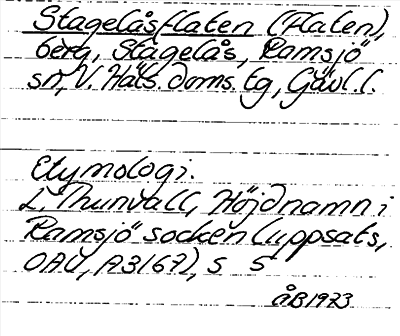 Stagelåsflaten (Flaten),
berg, Stagelås, Ramsjö
sn, V. Häls. doms. tg, Gävl. l.
Etymologi.
L. Thunvall, Höjdnamn i
Ramsjö socken (uppsats,
OAU, A3167), s 5
ÅB 1973